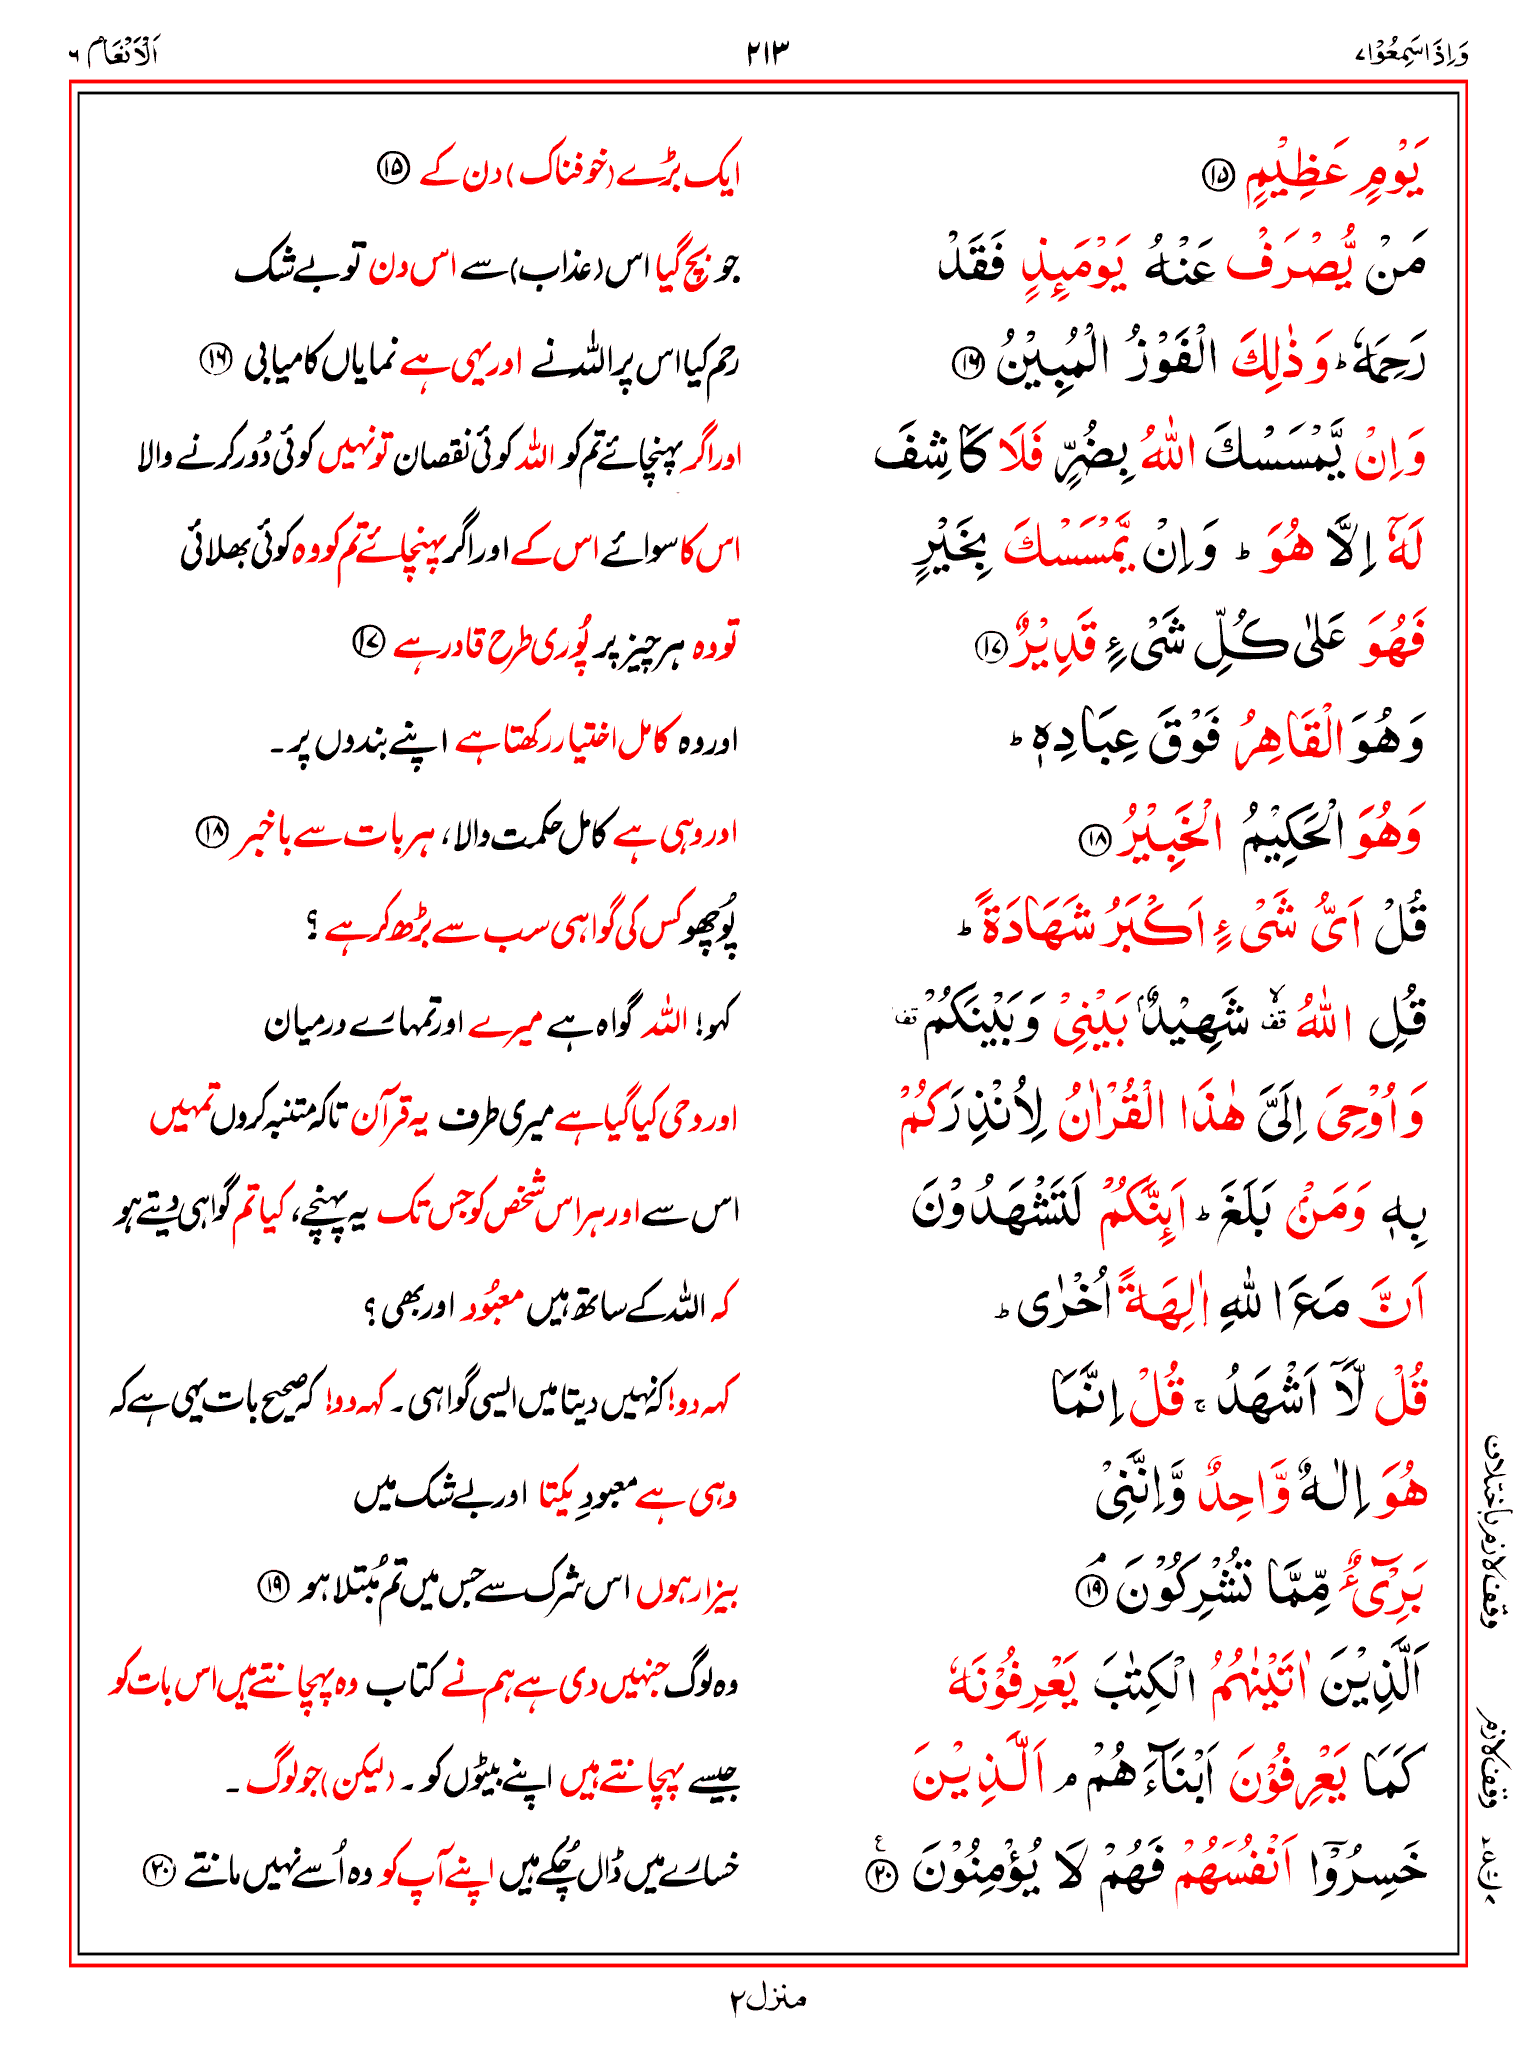 وَاِذَا سَمِعُوْا ۷
۲۱۳
اَلْاَنْعَام ۶
يَوْمٍ عَظِيْمٍ ۝۱۵
ایک بڑے (خوفناک) دن کے ۝۱۵
مَنْ يُّصْرَفْ عَنْهُ يَوْمَىِٕذٍ فَقَدْ
جو بچ گیا اس (عذاب) سے اس دن تو بے شک
رَحِمَهٗ ؕ وَذٰلِكَ الْفَوْزُ الْمُبِيْنُ ۝۱۶
رحم کیا اس پر اللہ نے اور یہی ہے نمایاں کامیابی ۝۱۶
وَاِنْ يَّمْسَسْكَ اللّٰهُ بِضُرٍّ فَلَا كَاشِفَ
اور اگر پہنچائے تم کو اللہ کوئی نقصان تو نہیں کوئی دُور کرنے والا
لَهٗۤ اِلَّا هُوَ ؕ وَاِنْ يَّمْسَسْكَ بِخَيْرٍ
اس کا سوائے اس کے اور اگر پہنچائے تم کو وہ کوئی بھلائی
فَهُوَ عَلٰى كُلِّ شَىْءٍ قَدِيْرٌ ۝۱۷
تو وہ ہر چیز پر پُوری طرح قادر ہے ۝۱۷
وَهُوَ الْقَاهِرُ فَوْقَ عِبَادِهٖ ؕ
اور وہ کامل اختیار رکھتا ہے اپنے بندوں پر۔
وَهُوَ الْحَكِيْمُ الْخَبِيْرُ ۝۱۸
اور وہی ہے کامل حکمت والا، ہر بات سے باخبر ۝۱۸
قُلْ اَىُّ شَىْءٍ اَكْبَرُ شَهَادَةً ؕ
پُوچھو کس کی گواہی سب سے بڑھ کر ہے ؟
قُلِ اللّٰهُ ۙ قف شَهِيْدٌۢ بَيْنِىْ وَبَيْنَكُمْ قف
کہو! اللہ گواہ ہے میرے اور تمہارے درمیان
وَاُوْحِىَ اِلَىَّ هٰذَا الْقُرْاٰنُ لِاُنْذِرَكُمْ
اور وحی کیا گیا ہے میری طرف یہ قرآن تاکہ متنبہ کروں تمہیں
بِهٖ وَمَنْۢ بَلَغَ ؕ اَىِٕنَّكُمْ لَتَشْهَدُوْنَ
اس سے اور ہر اس شخص کو جس تک یہ پہنچے، کیا تم گواہی دیتے ہو
اَنَّ مَعَ اللّٰهِ اٰلِهَةً اُخْرٰى ؕ
کہ اللہ کے ساتھ ہیں معبُود اور بھی ؟
قُلْ لَّاۤ اَشْهَدُ ۚ قُلْ اِنَّمَا
کہہ دو! کہ نہیں دیتا میں ایسی گواہی۔ کہہ دو! کہ صحیح بات یہی ہے کہ
هُوَ اِلٰهٌ وَّاحِدٌ وَّاِنَّنِىْ
وہی ہے معبودِ یکتا اور بے شک میں
بَرِىْٓءٌ مِّمَّا تُشْرِكُوْنَ ۘ۝۱۹
بیزار ہوں اس شرک سے جس میں تم مُبتلا ہو ۝۱۹
اَلَّذِيْنَ اٰتَيْنٰهُمُ الْكِتٰبَ يَعْرِفُوْنَهٗ
وہ لوگ جنہیں دی ہے ہم نے کتاب وہ پہچانتے ہیں اس بات کو
كَمَا يَعْرِفُوْنَ اَبْنَآءَهُمْ ۘ اَلَّذِيْنَ
جیسے پہچانتے ہیں اپنے بیٹوں کو۔ (لیکن) جو لوگ۔
خَسِرُوْۤا اَنْفُسَهُمْ فَهُمْ لَا يُؤْمِنُوْنَ ۝۲۰ ع
خسارے میں ڈال چُکے ہیں اپنے آپ کو وہ اُسے نہیں مانتے ۝۲۰
وقف لازم باختلاف
وقف لازم
منزل ۲